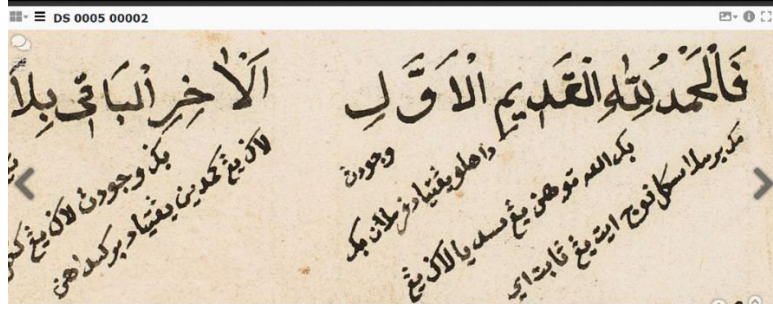 DS 0005 00002
فَالْحَمْدُ لِلّٰهِ الْقَدِيمِ الْاَوَّلِ اَلْاٰخِرِ الْبَاقِي بِلَا
مك برملا سكل فوج ايت يڠ ثابت اي
بك الله توهن يڠ سديا لاك يڠ
داهلو يڠتياد فرملاان بك
وجودن
لاك يڠ كمدين يڠتياد بركسداهن
بك وجودن لاك يڠ